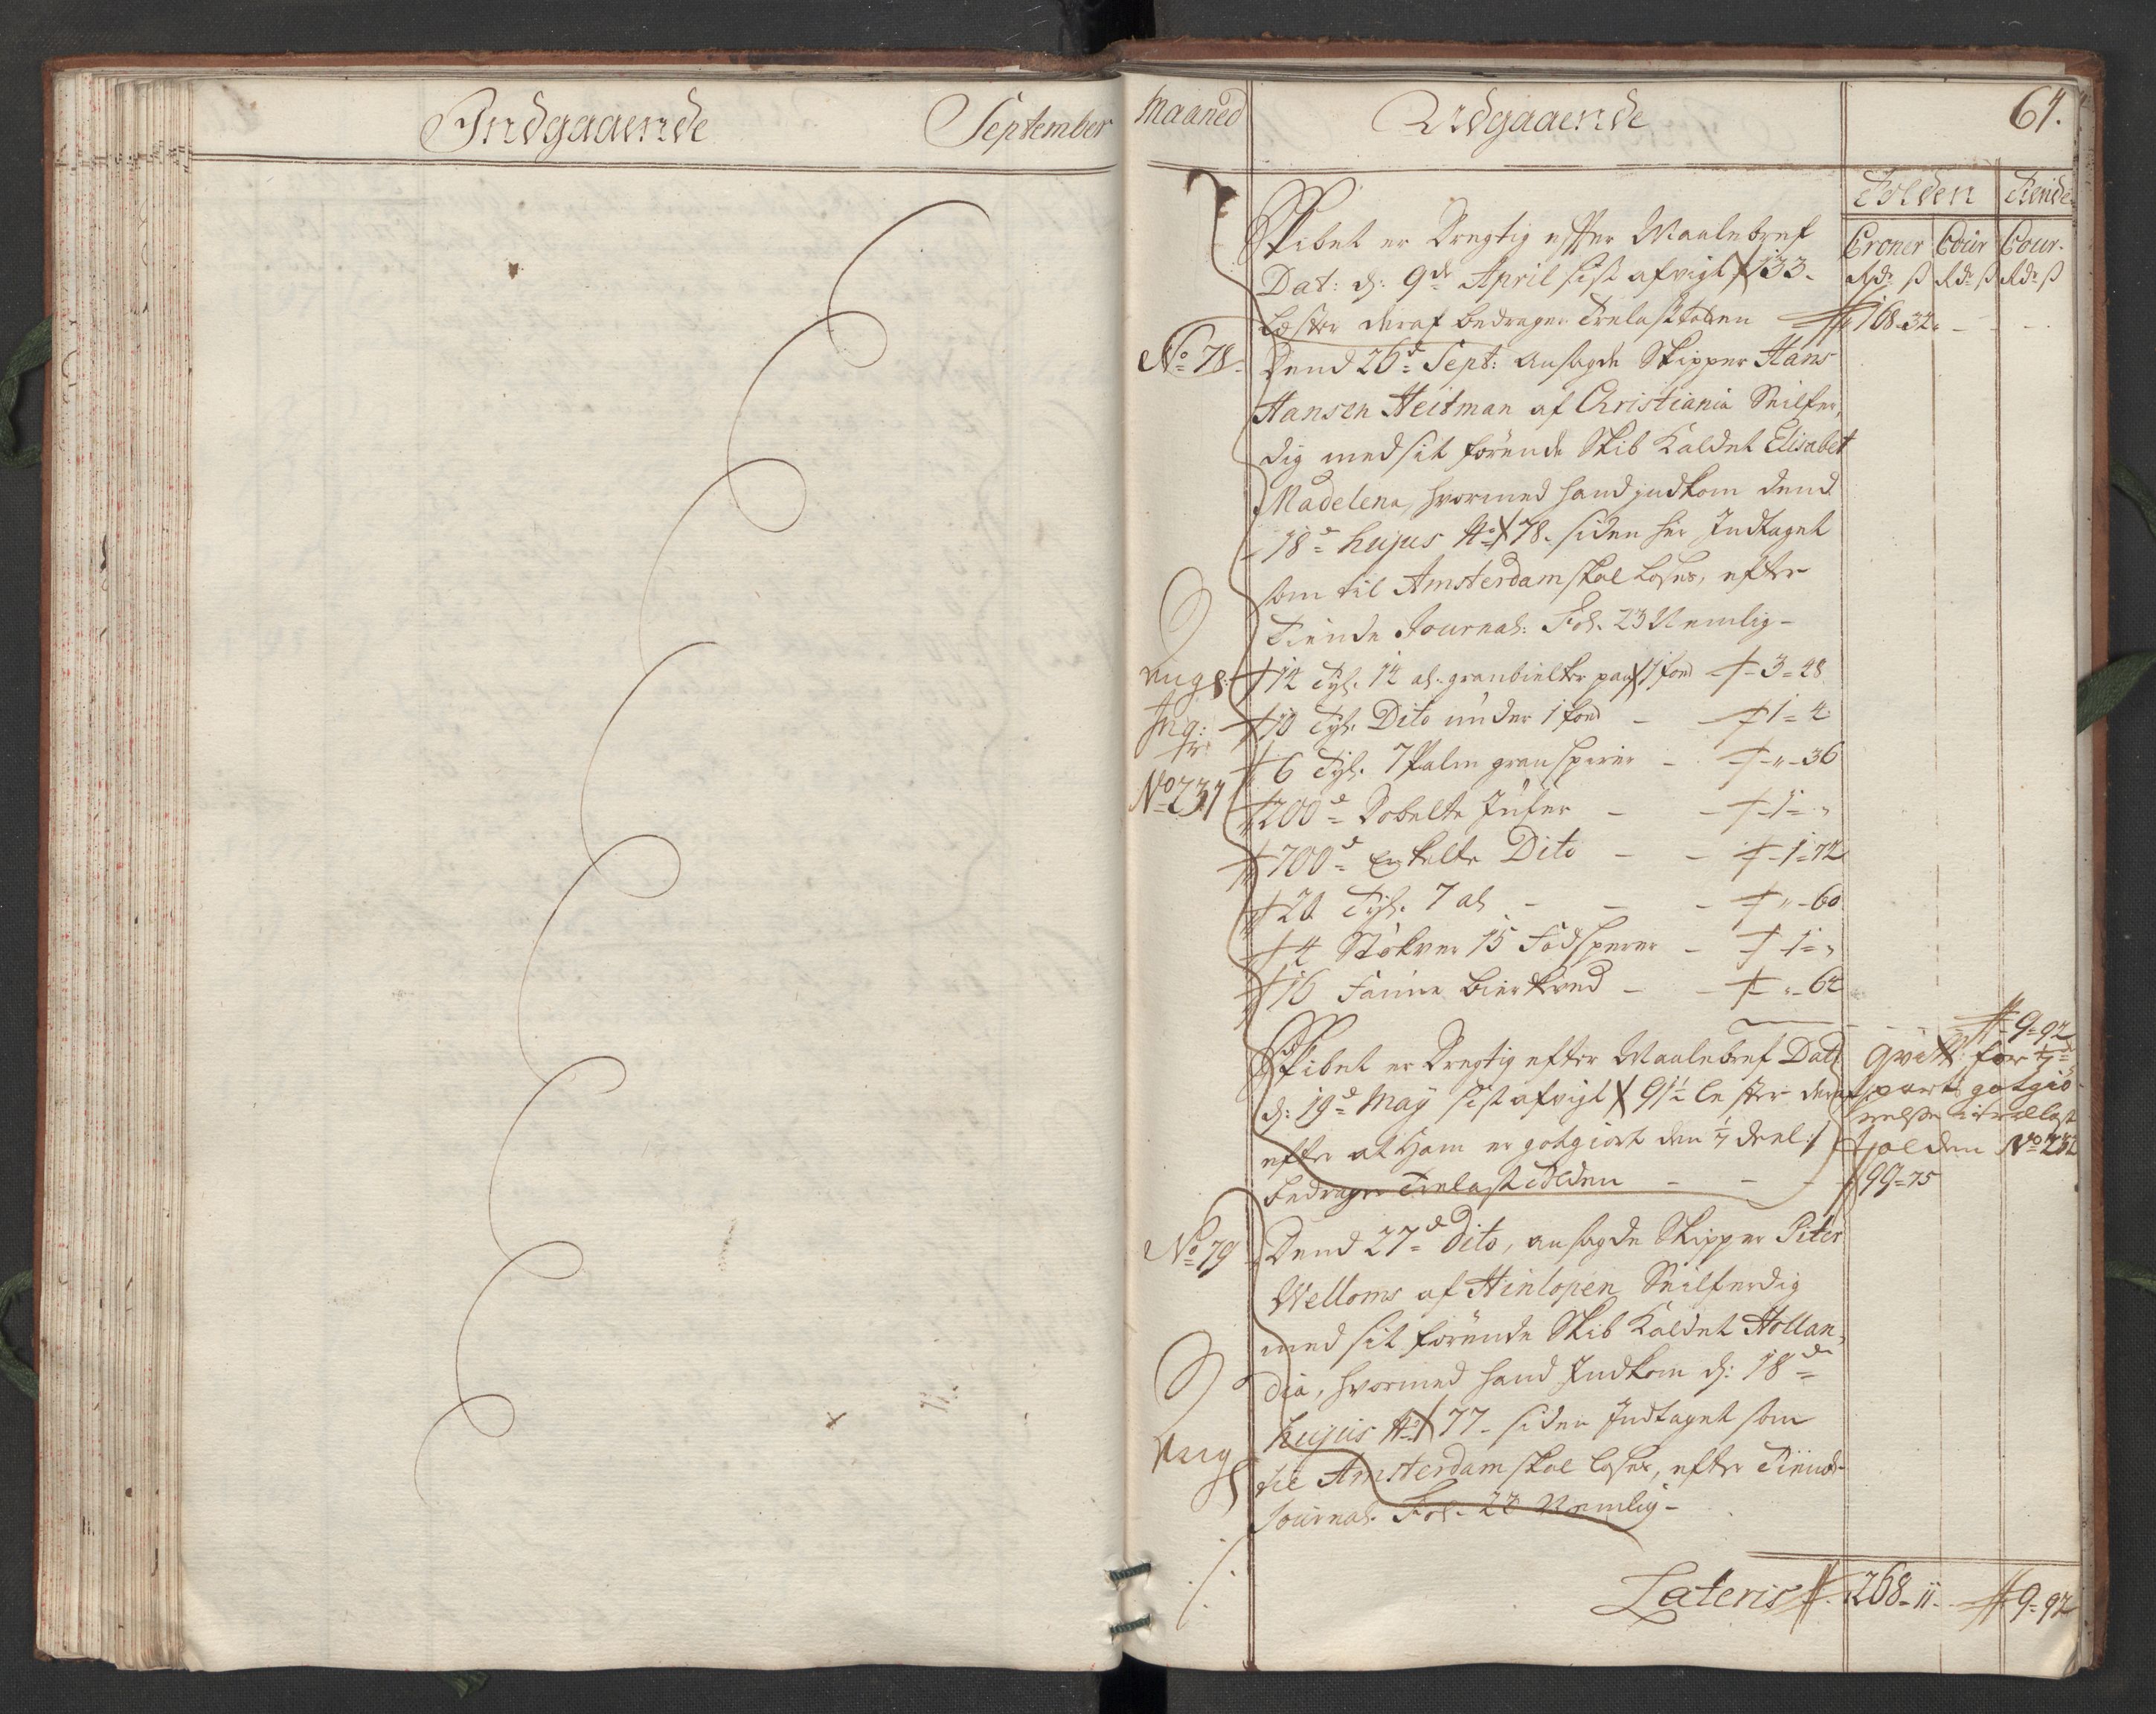 Indgaaende
September
Maaned
Udgaaende
64.
Tolden
Tiende
Croner
Cour
Cour.
Rdr ß
Rdr ß
Rdr ß
Skibet er Drægtig efter Maalebref
Dat: d: 9de April sist afvigt 133.
Læster deraf bedrager Trelasttolden
168-32
No 78.
Dend 26d Sept: ansagde Skipper Hans
Hansen Heitman af Christiania Seilfer,
dig med sit førende Skib Kaldet Elisabet
Madelena, hvormed hand indkom dend
18d hujus No 78. siden her Indtaget
som til Amsterdam skal loses, efter
Tiende Journal: Fol. 23 Nemlig -
Ang:
No 237
12 Tyl. 12 al. granbielker paa 1 fod 3-28
10 Tyl. Dito under 1 fod - 1-4
6 Tyl. 7 Palm gran sperer - " - 36
200d Dobelte Jufer - 1-"
700d Enkelte Dito - 1-72
20 Tyl. 7 al - " - 60
4 Støkver 15 Fods sperer - 1-"
16 Famne bierkved - " - 64
9-92
Skibet er Drægtig efter Maalebref Dat
d: 19d May sist afvigt 91½ lester deraf
efter at Ham er gotgiort den 1/7 deel
bedrager Trelast Tolden
99-75
Qvitt: for 1/7
part gotgiø
relse i trælast
tolden No 232
No 79
Dend 27d Dito, ansagde Skipper Piter
Welloms af Hinlopen Seilferdig
med sit førende Skib Kaldet Hollan,
dia, hvormed hand Indkom d: 18de
hujus No 77- siden Indtaget som
til Amsterdam skal loses, efter Tiende
Journal. Fol. 22 Nemlig -
Ang
Lateris
268-11-
9-92